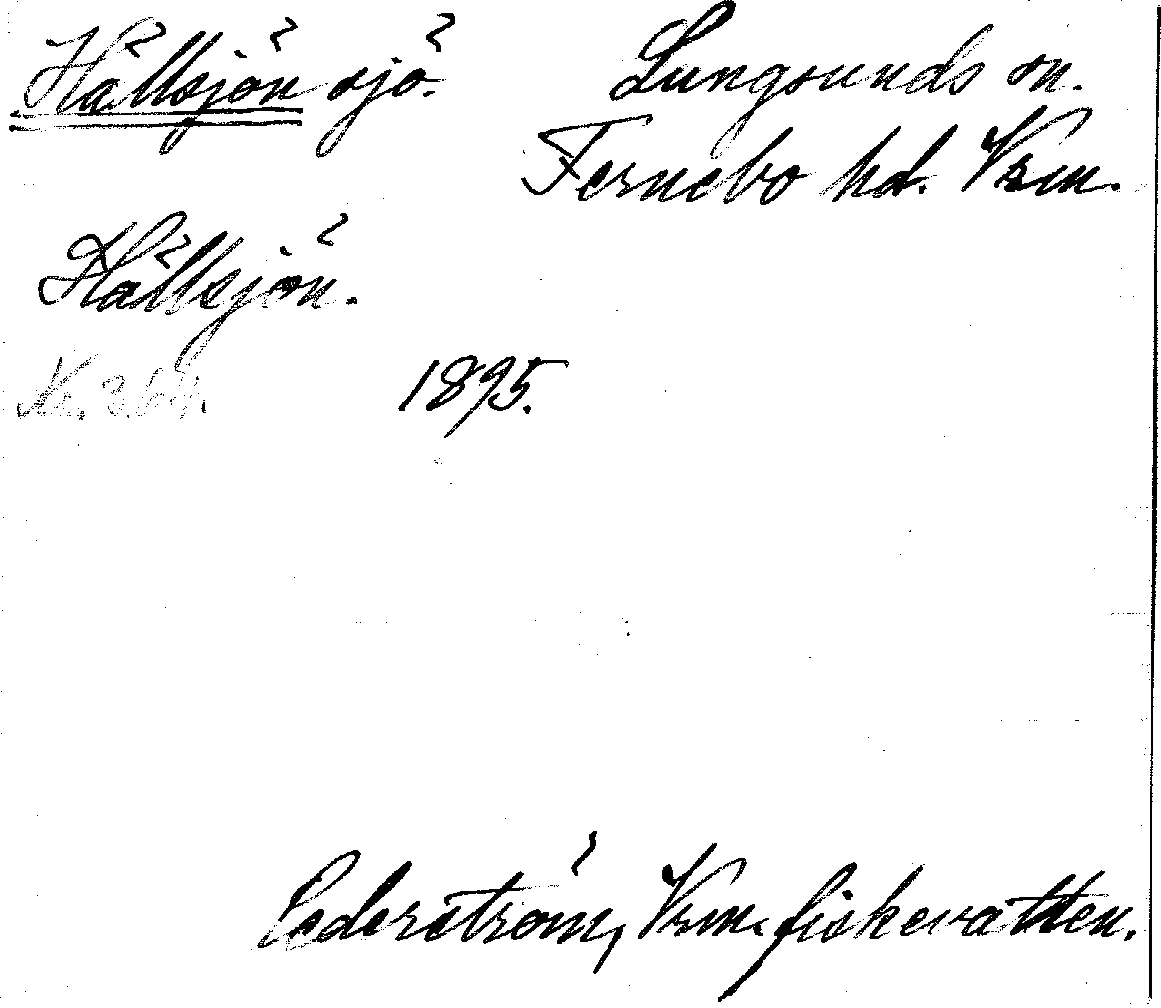 Hällsjön sjö. Lungsunds sn.
Fernebo hd. Vrm.
Hällsjön.
Nr. 364. 1895.
Cederström, Vrm. fiskevatten.